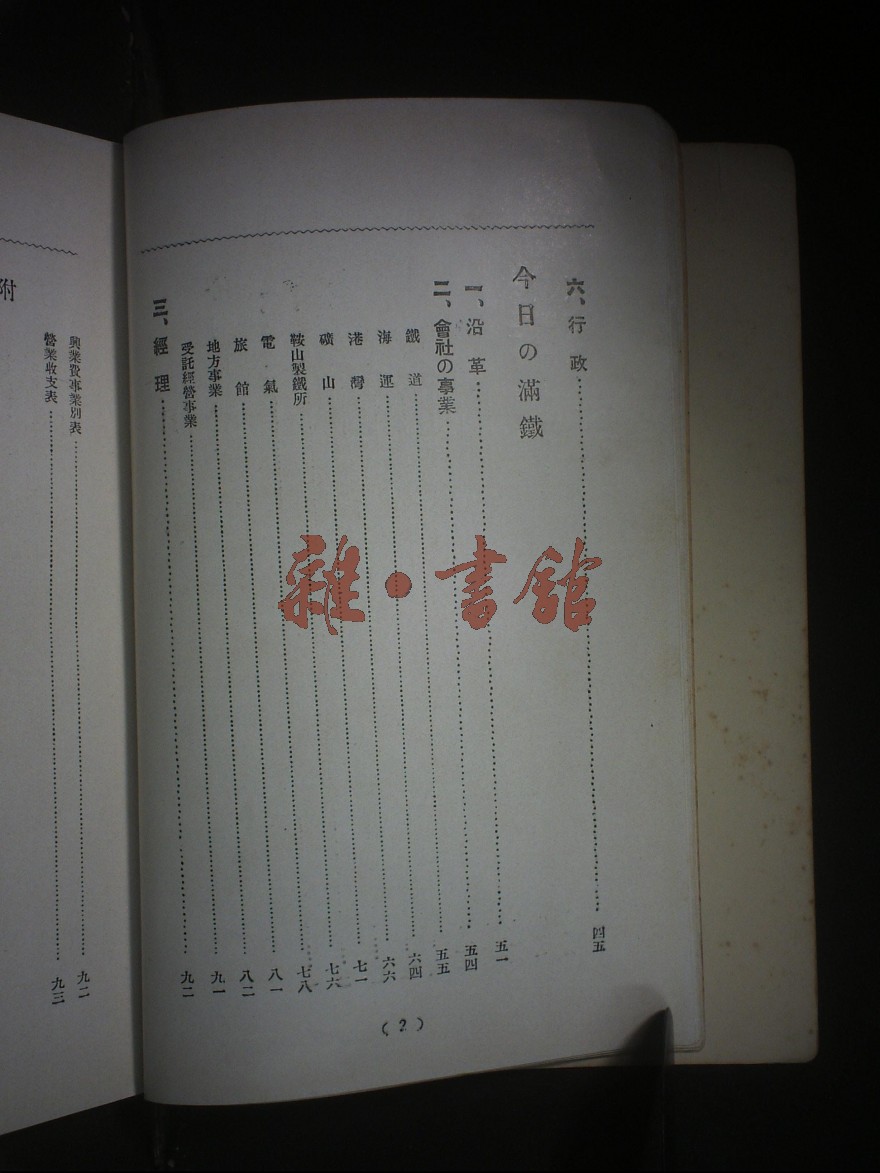 六、行政……四五
今日の滿鐵
一、沿革……五一
二、會社の事業……五四
鐵道……五五
海運……六四
港灣……六六
礦山……七一
鞍山製鐵所……七六
電氣……七八
旅館……八一
地方事業……八二
受託經營事業……九一
三、經理……九二
(2)
興業費事業別表……九二
營業收支表……九三
附
雜·書館